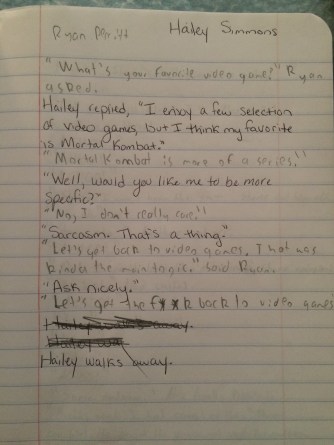 Ryan Hailey Simmons
"What's your favorite video game?" Ryan
asked.
Hailey replied, "I enjoy a few selection
of video games, but I think my favorite
is Mortal Kombat."
"Mortal Kombat is more of a series."
"Well, would you like me to be more
specific?"
"No, I don't really care."
"Sarcasm. That's a thing."
"Let's get back to video games. That was
kinda the main topic." Said Ryan.
"Ask nicely."
"Let's get the f**k back to video games
Hailey walks away.